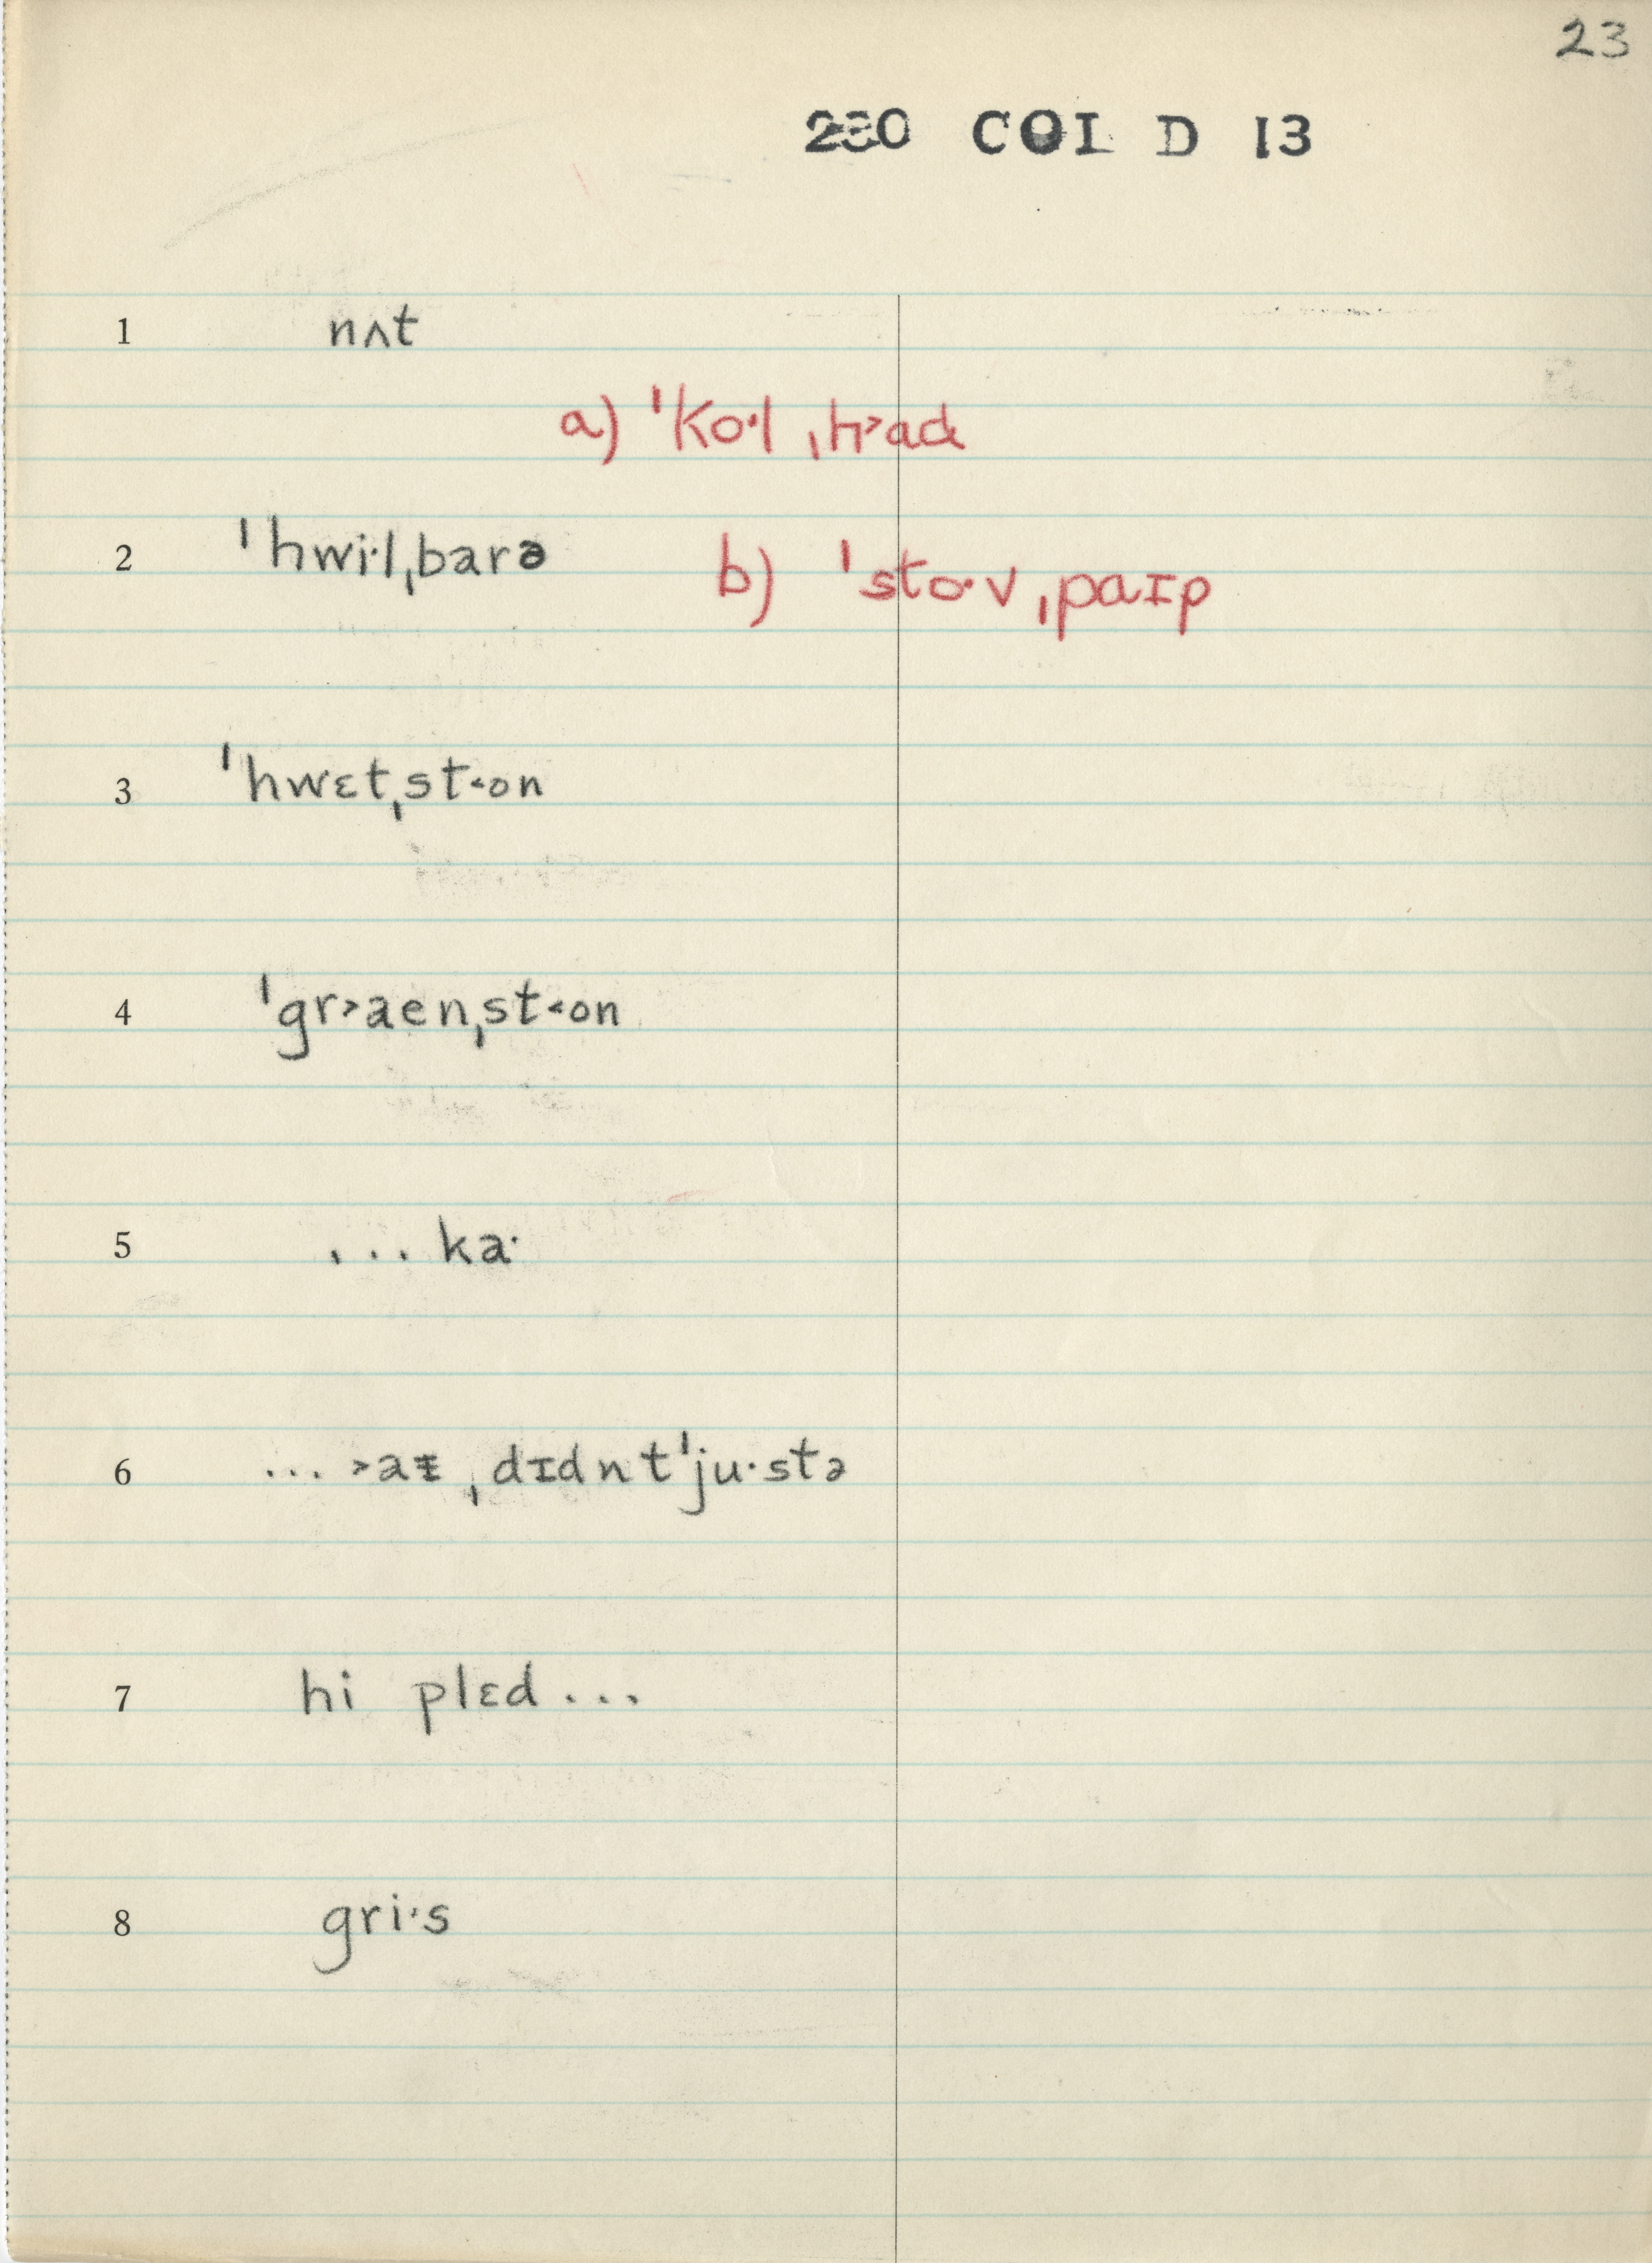 23
230 COL D 13
1 nʌt
a) ˈko·l ˌh˃ad
2 ˈhwi·lˌbarə
b) ˈsto·v ˌpaɪp
3 ˈhwɛtˌst˂on
4 ˈgr˃aenˌst˂on
5 ... ka·
6 ... ˃aɪ ˌdɪdntˈju·stə
7 hi plɛd ...
8 gri·s